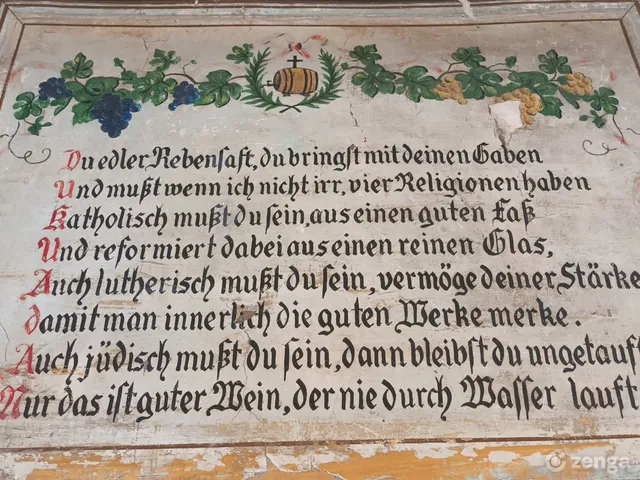 Du edler Rebensaft, du bringst mit deinen Gaben
Und mußt wenn ich nicht irr. vier Religionen haben
Katholisch mußt du sein, aus einen guten Faß
Und reformiert dabei aus einen reinen Glas,
Auch lutherisch mußt du sein, vermöge deiner Stärke
damit man innerlich die guten Werke merke.
Auch jüdisch mußt du sein, dann bleibst du ungetauft
Nur das ist guter Wein, der nie durch Wasser lauft
zenga